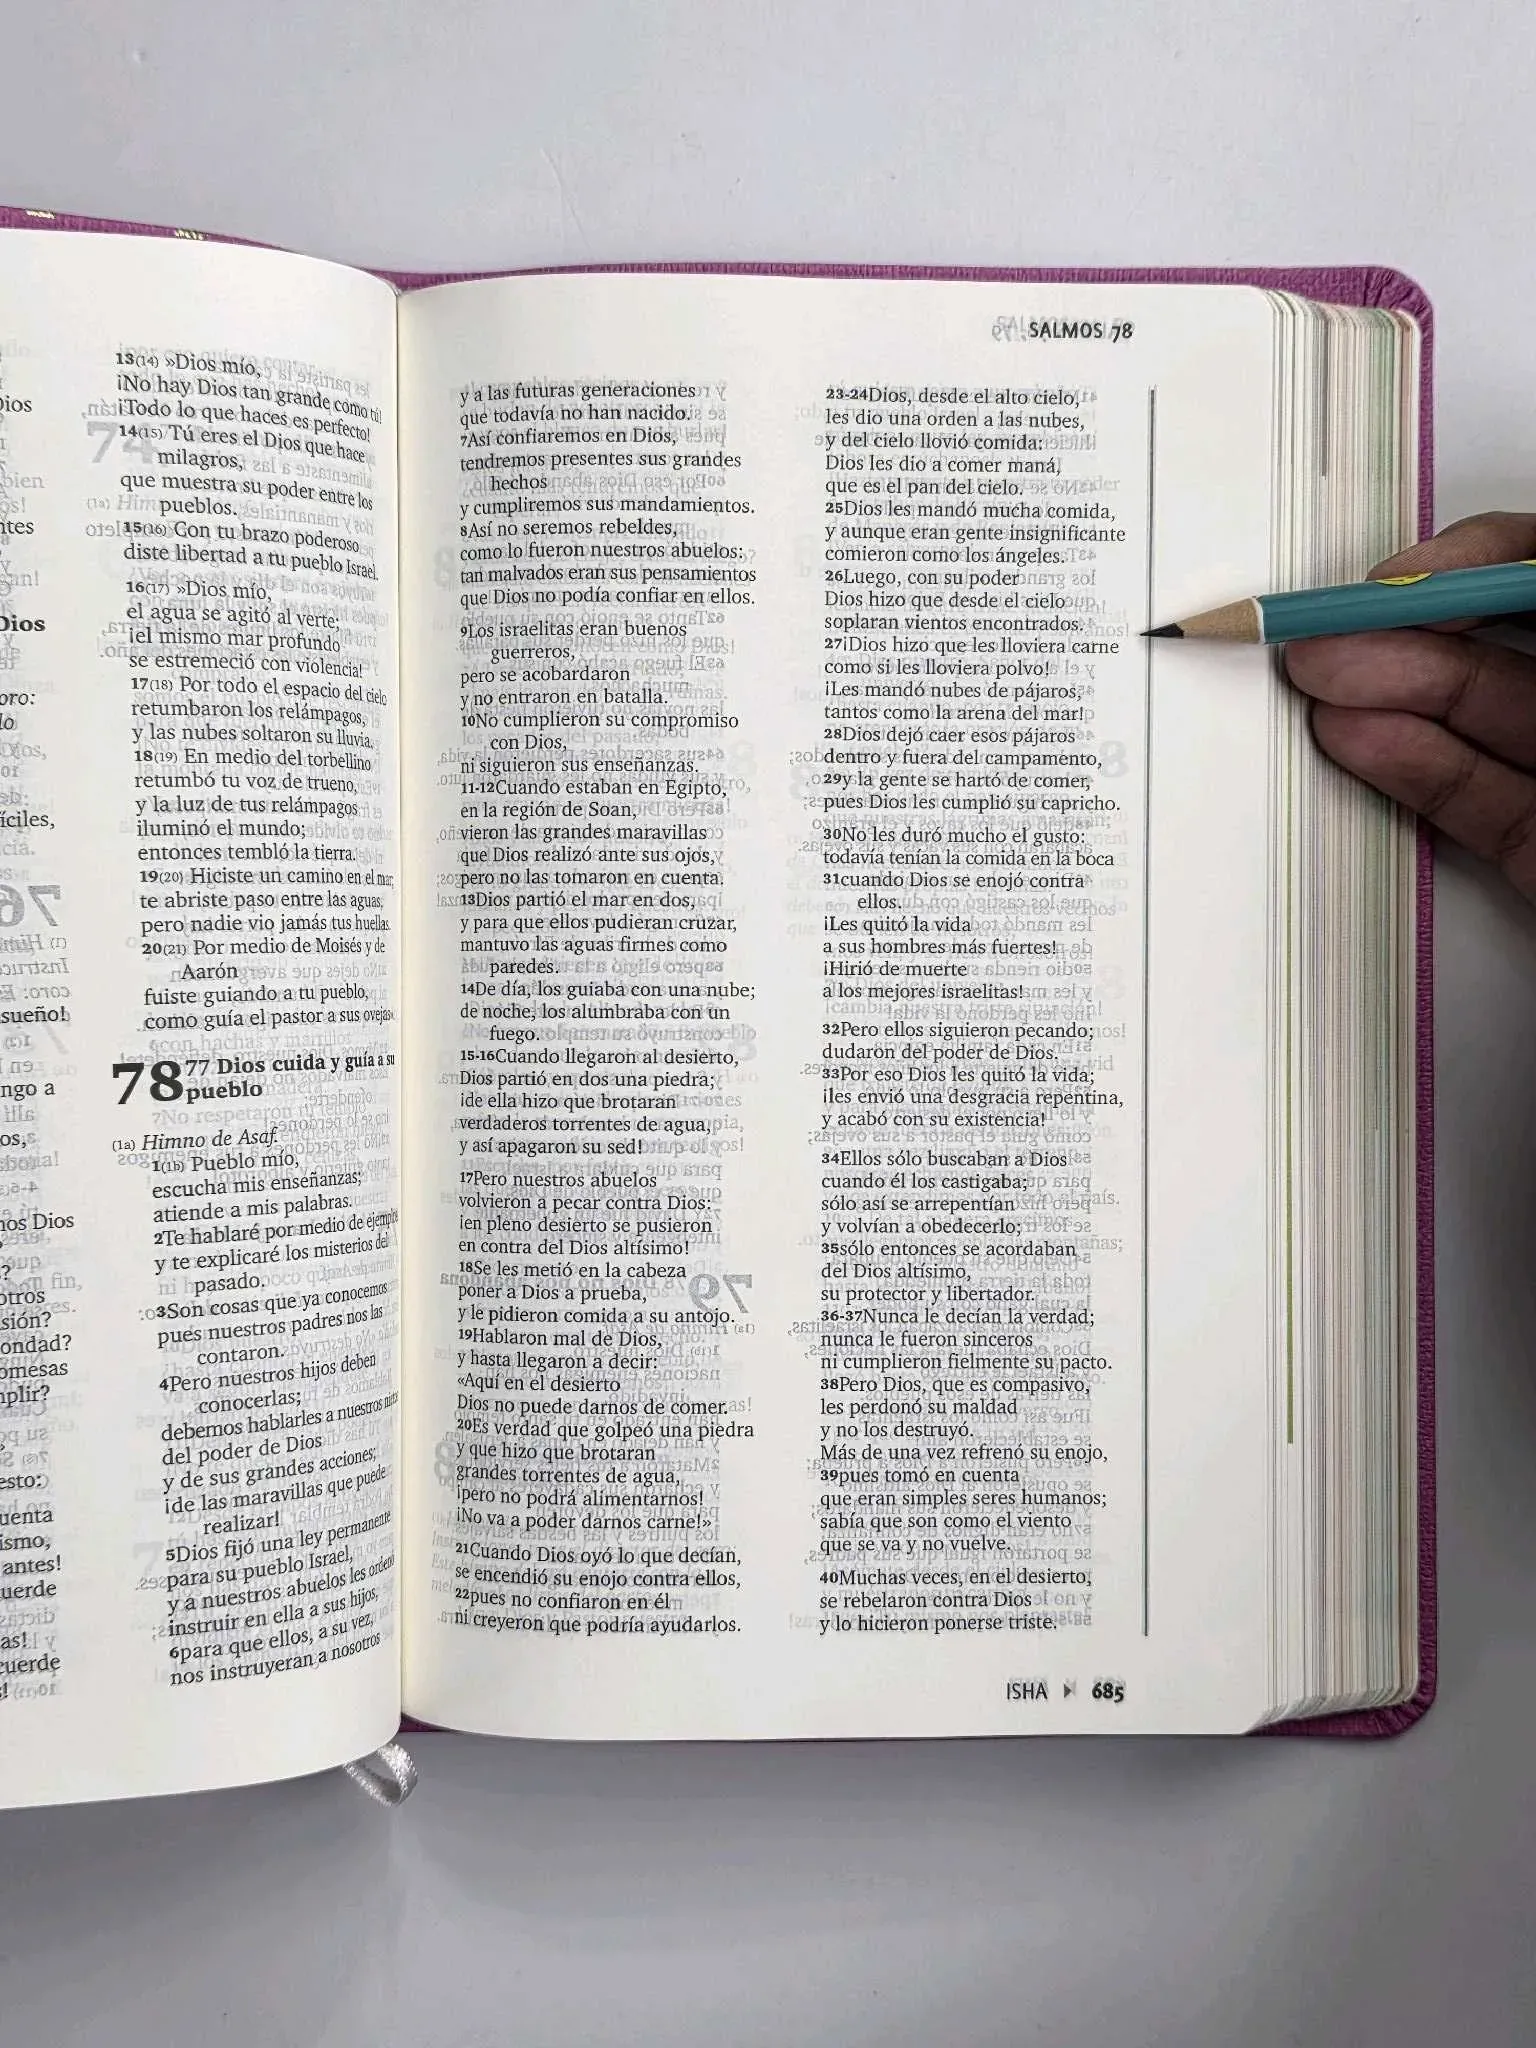 13(14) »Dios mío,
¡No hay Dios tan grande como tú!
¡Todo lo que haces es perfecto!
14(15) Tú eres el Dios que hace
milagros,
que muestra su poder entre los
pueblos.
15(16) Con tu brazo poderoso
diste libertad a tu pueblo Israel.
16(17) »Dios mío,
el agua se agitó al verte;
¡el mismo mar profundo
se estremeció con violencia!
17(18) Por todo el espacio del cielo
retumbaron los relámpagos,
y las nubes soltaron su lluvia.
18(19) En medio del torbellino
retumbó tu voz de trueno,
y la luz de tus relámpagos
iluminó el mundo;
entonces tembló la tierra.
19(20) Hiciste un camino en el mar,
te abriste paso entre las aguas,
pero nadie vio jamás tus huellas.
20(21) Por medio de Moisés y de
Aarón
fuiste guiando a tu pueblo,
como guía el pastor a sus ovejas».
78 77 Dios cuida y guía a su
pueblo
(1a) Himno de Asaf.
1(1b) Pueblo mío,
escucha mis enseñanzas;
atiende a mis palabras.
2Te hablaré por medio de ejemplos
y te explicaré los misterios del
pasado.
3Son cosas que ya conocemos
pues nuestros padres nos las
contaron.
4Pero nuestros hijos deben
conocerlas;
debemos hablarles a nuestros nietos
del poder de Dios
y de sus grandes acciones;
¡de las maravillas que puede
realizar!
5Dios fijó una ley permanente
para su pueblo Israel,
y a nuestros abuelos les ordenó
instruir en ella a sus hijos,
6para que ellos, a su vez,
nos instruyeran a nosotros
SALMOS 78
y a las futuras generaciones
que todavía no han nacido.
7Así confiaremos en Dios,
tendremos presentes sus grandes
hechos
y cumpliremos sus mandamientos.
8Así no seremos rebeldes,
como lo fueron nuestros abuelos;
tan malvados eran sus pensamientos
que Dios no podía confiar en ellos.
9Los israelitas eran buenos
guerreros,
pero se acobardaron
y no entraron en batalla.
10No cumplieron su compromiso
con Dios,
ni siguieron sus enseñanzas.
11-12Cuando estaban en Egipto,
en la región de Soan,
vieron las grandes maravillas
que Dios realizó ante sus ojos,
pero no las tomaron en cuenta.
13Dios partió el mar en dos,
y para que ellos pudieran cruzar,
mantuvo las aguas firmes como
paredes.
14De día, los guiaba con una nube;
de noche, los alumbraba con un
fuego.
15-16Cuando llegaron al desierto,
Dios partió en dos una piedra;
¡de ella hizo que brotaran
verdaderos torrentes de agua,
y así apagaron su sed!
17Pero nuestros abuelos
volvieron a pecar contra Dios:
¡en pleno desierto se pusieron
en contra del Dios altísimo!
18Se les metió en la cabeza
poner a Dios a prueba,
y le pidieron comida a su antojo.
19Hablaron mal de Dios,
y hasta llegaron a decir:
«Aquí en el desierto
Dios no puede darnos de comer.
20Es verdad que golpeó una piedra
y que hizo que brotaran
grandes torrentes de agua,
¡pero no podrá alimentarnos!
¡No va a poder darnos carne!»
21Cuando Dios oyó lo que decían,
se encendió su enojo contra ellos,
22pues no confiaron en él
ni creyeron que podría ayudarlos.
23-24Dios, desde el alto cielo,
les dio una orden a las nubes,
y del cielo llovió comida:
Dios les dio a comer maná,
que es el pan del cielo.
25Dios les mandó mucha comida,
y aunque eran gente insignificante
comieron como los ángeles.
26Luego, con su poder
Dios hizo que desde el cielo
soplaran vientos encontrados.
27¡Dios hizo que les lloviera carne
como si les lloviera polvo!
¡Les mandó nubes de pájaros,
tantos como la arena del mar!
28Dios dejó caer esos pájaros
dentro y fuera del campamento,
29y la gente se hartó de comer,
pues Dios les cumplió su capricho.
30No les duró mucho el gusto:
todavía tenían la comida en la boca
31cuando Dios se enojó contra
ellos.
¡Les quitó la vida
a sus hombres más fuertes!
¡Hirió de muerte
a los mejores israelitas!
32Pero ellos siguieron pecando;
dudaron del poder de Dios.
33Por eso Dios les quitó la vida;
¡les envió una desgracia repentina,
y acabó con su existencia!
34Ellos sólo buscaban a Dios
cuando él los castigaba;
sólo así se arrepentían
y volvían a obedecerlo;
35sólo entonces se acordaban
del Dios altísimo,
su protector y libertador.
36-37Nunca le decían la verdad;
nunca le fueron sinceros
ni cumplieron fielmente su pacto.
38Pero Dios, que es compasivo,
les perdonó su maldad
y no los destruyó.
Más de una vez refrenó su enojo,
39pues tomó en cuenta
que eran simples seres humanos;
sabía que son como el viento
que se va y no vuelve.
40Muchas veces, en el desierto,
se rebelaron contra Dios
y lo hicieron ponerse triste.
ISHA 685